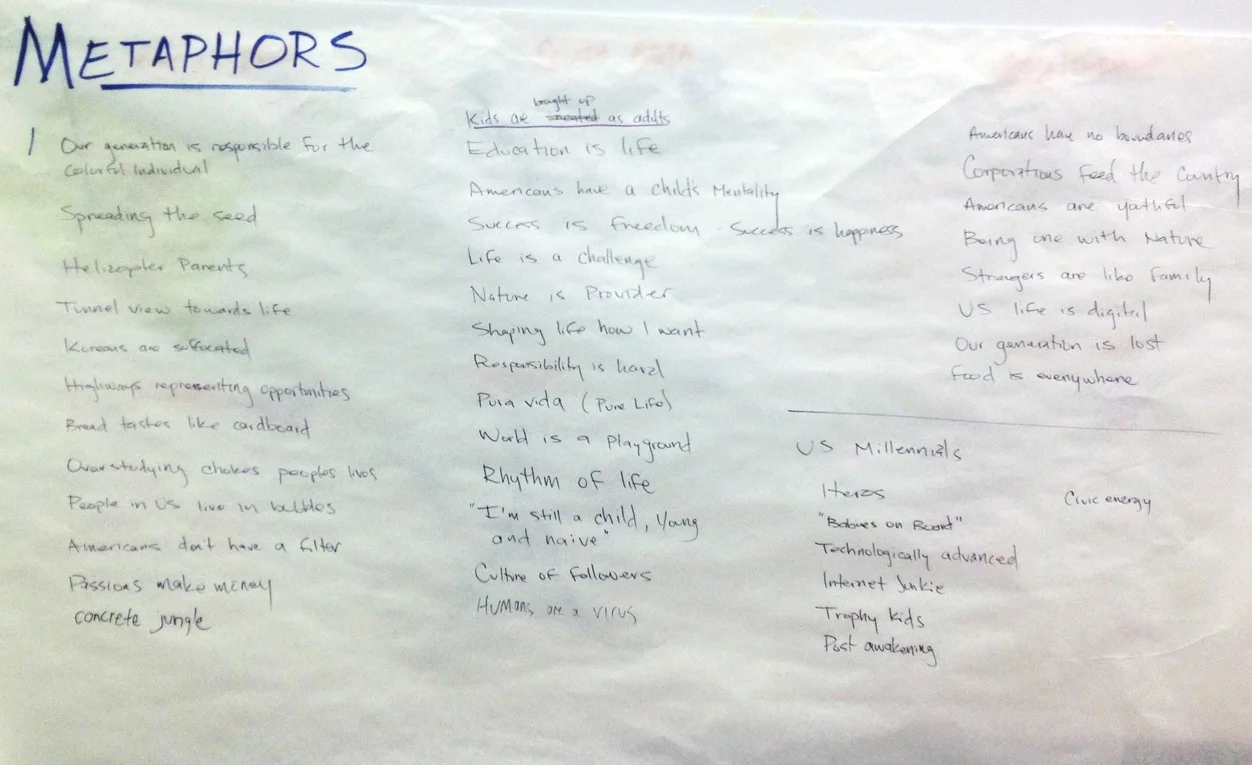 METAPHORS
Our generation is responsible for the
Colorful Individual
Spreading the seed
Helicopter Parents
Tunnel view towards life
Koreans are suffocated
Highways representing opportunities
Bread tastes like cardboard
Overstudying chokes peoples lives
People in US live in bubbles
Americans don't have a filter
Passions make money
concrete jungle
brought up
Kids are treated as adults
Education is life
Americans have a child's Mentality
Success is freedom - Success is happiness
Life is a challenge
Nature is Provider
Shaping life how I want
Responsibility is hard
Pura vida (Pure Life)
World is a playground
Rhythm of life
"I'm still a child, young
and naive"
Culture of followers
Humans are a virus
Americans have no boundaries
Corporations feed the Country
Americans are youthful
Being one with Nature
Strangers are like family
US life is digital
Our generation is lost
Food is everywhere
US Millennials
Heros
"Babies on Board"
Technologically advanced
Internet Junkie
Trophy kids
Post awakening
Civic energy